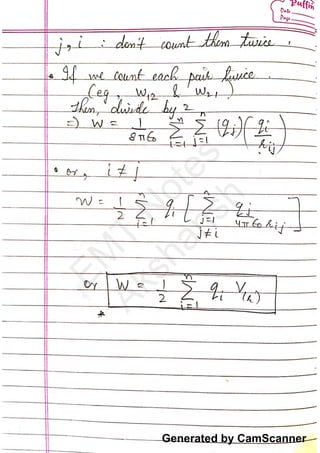 Puffin
Date
Page
j, i : don't count them twice.
• If we count each pair twice.
(eg, W12 & W21)
Then, divide by 2
=> W = 1/8πε0 ∑(i=1)^n ∑(j=1)^n (qj) (qi/rij)
• or, i ≠ j
W = 1/2 ∑(i=1)^n qi [ ∑(j=1, j≠i)^n qj/4πε0 rij ]
or W = 1/2 ∑(i=1)^n qi V(r)
EMT Notes
Generated by CamScanner